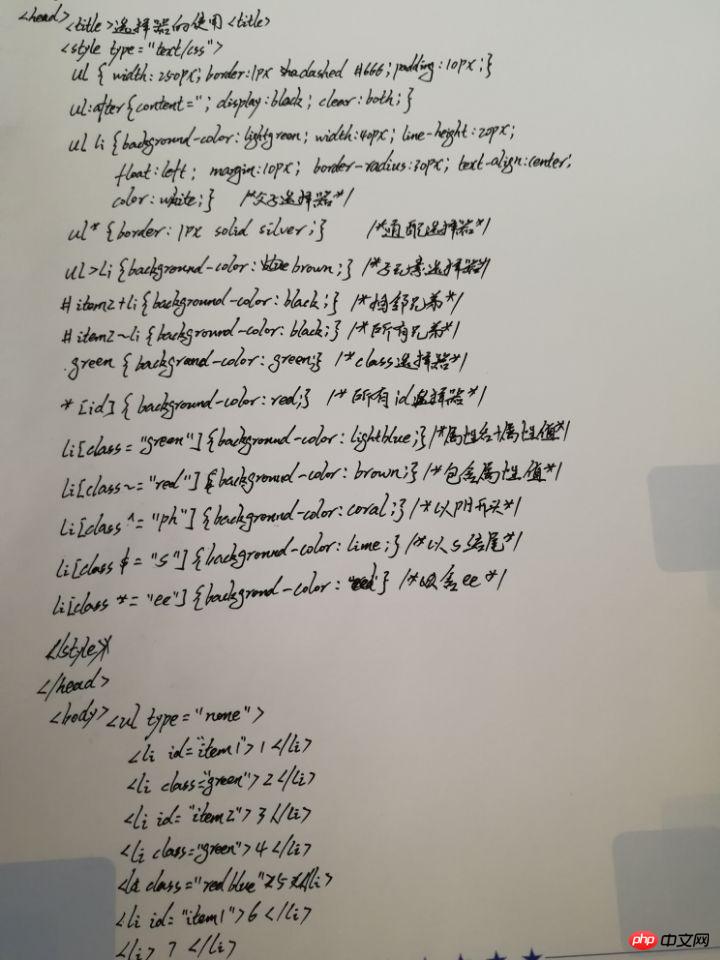 <head>
<title>选择器的使用<title>
<style type="text/css">
ul { width: 250px; border:1px dashed #666; padding:10px;}
ul:after{content=''; display:black; clear:both;}
ul li {background-color: lightgreen; width:40px; line-height:20px;
float:left; margin:10px; border-radius:30px; text-align:center;
color: white;} /*父子选择器*/
ul * {border: 1px solid silver;} /*通配选择器*/
ul>li {background-color: brown;} /*子元素选择器*/
#item2+li{background-color: black;} /*相邻兄弟*/
#item2~li {background-color: black;} /*所有兄弟*/
.green {background-color: green;} /*class选择器*/
*[id] {background-color: red;} /*所有id选择器*/
li[class = "green"]{background-color: lightblue;} /*属性名+属性值*/
li[class~="red"] {background-color: brown;} /*包含属性值*/
li[class ^= "ph"] {background-color: coral;} /*以ph开头*/
li[class $= "s"] {background-color: lime;} /*以s结尾*/
li[class *= "ee"] {background-color: } /* 含ee */
</style>
</head>
<body> <ul type="none">
<li id="item1">1</li>
<li class="green">2</li>
<li id="item2">3</li>
<li class="green">4</li>
<li class="red blue">5</li>
<li id="item1">6</li>
<li>7</li>
php 中文网